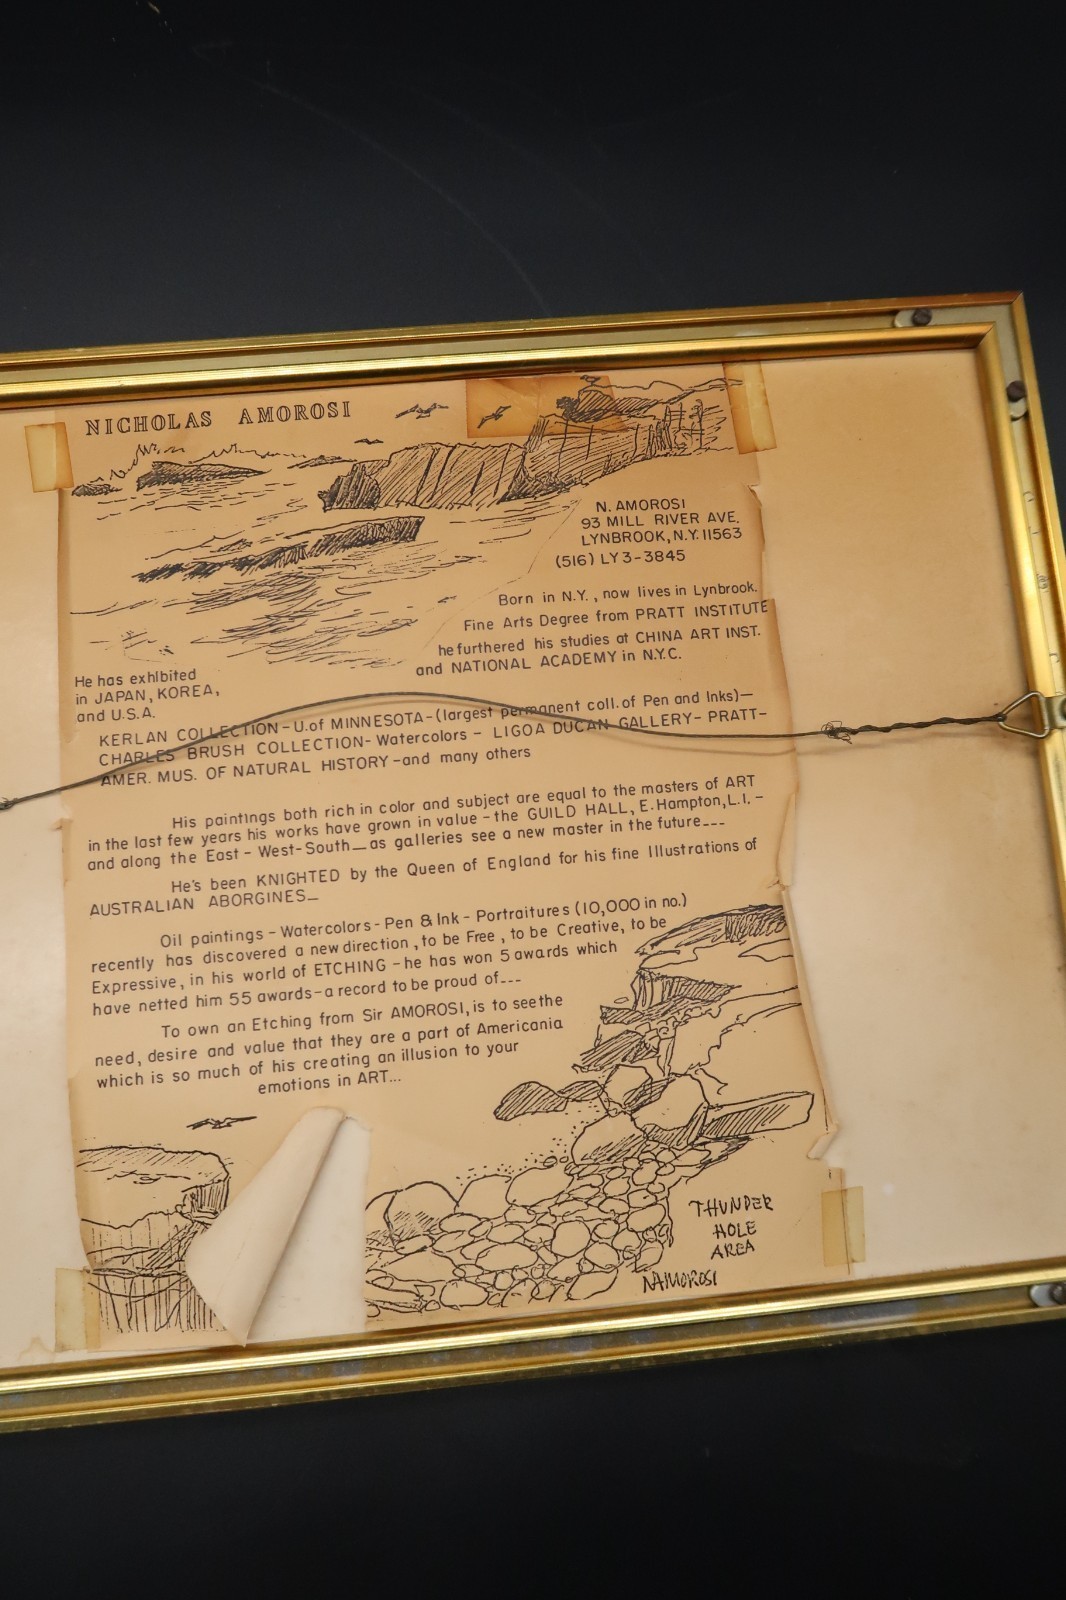 NICHOLAS AMOROSI
N. AMOROSI
93 MILL RIVER AVE.
LYNBROOK, N.Y. 11563
(516) LY3-3845
Born in N.Y., now lives in Lynbrook.
Fine Arts Degree from PRATT INSTITUTE
he furthered his studies at CHINA ART INST.
and NATIONAL ACADEMY in N.Y.C.
He has exhibited
in JAPAN, KOREA,
and U.S.A.
KERLAN COLLECTION-U.of MINNESOTA-(largest permanent coll. of Pen and Inks)—
CHARLES BRUSH COLLECTION-Watercolors - LIGOA DUCAN GALLERY- PRATT-
AMER. MUS. OF NATURAL HISTORY -and many others
His paintings both rich in color and subject are equal to the masters of ART
in the last few years his works have grown in value - the GUILD HALL, E. Hampton, L.I. -
and along the East - West-South— as galleries see a new master in the future---
He's been KNIGHTED by the Queen of England for his fine Illustrations of
AUSTRALIAN ABORGINES—
Oil paintings - Watercolors - Pen & Ink - Portraitures (10,000 in no.)
recently has discovered a new direction, to be Free, to be Creative, to be
Expressive, in his world of ETCHING - he has won 5 awards which
have netted him 55 awards - a record to be proud of---
To own an Etching from Sir AMOROSI, is to see the
need, desire and value that they are a part of Americania
which is so much of his creating an illusion to your
emotions in ART...
THUNDER
HOLE
AREA
NAMOROSI